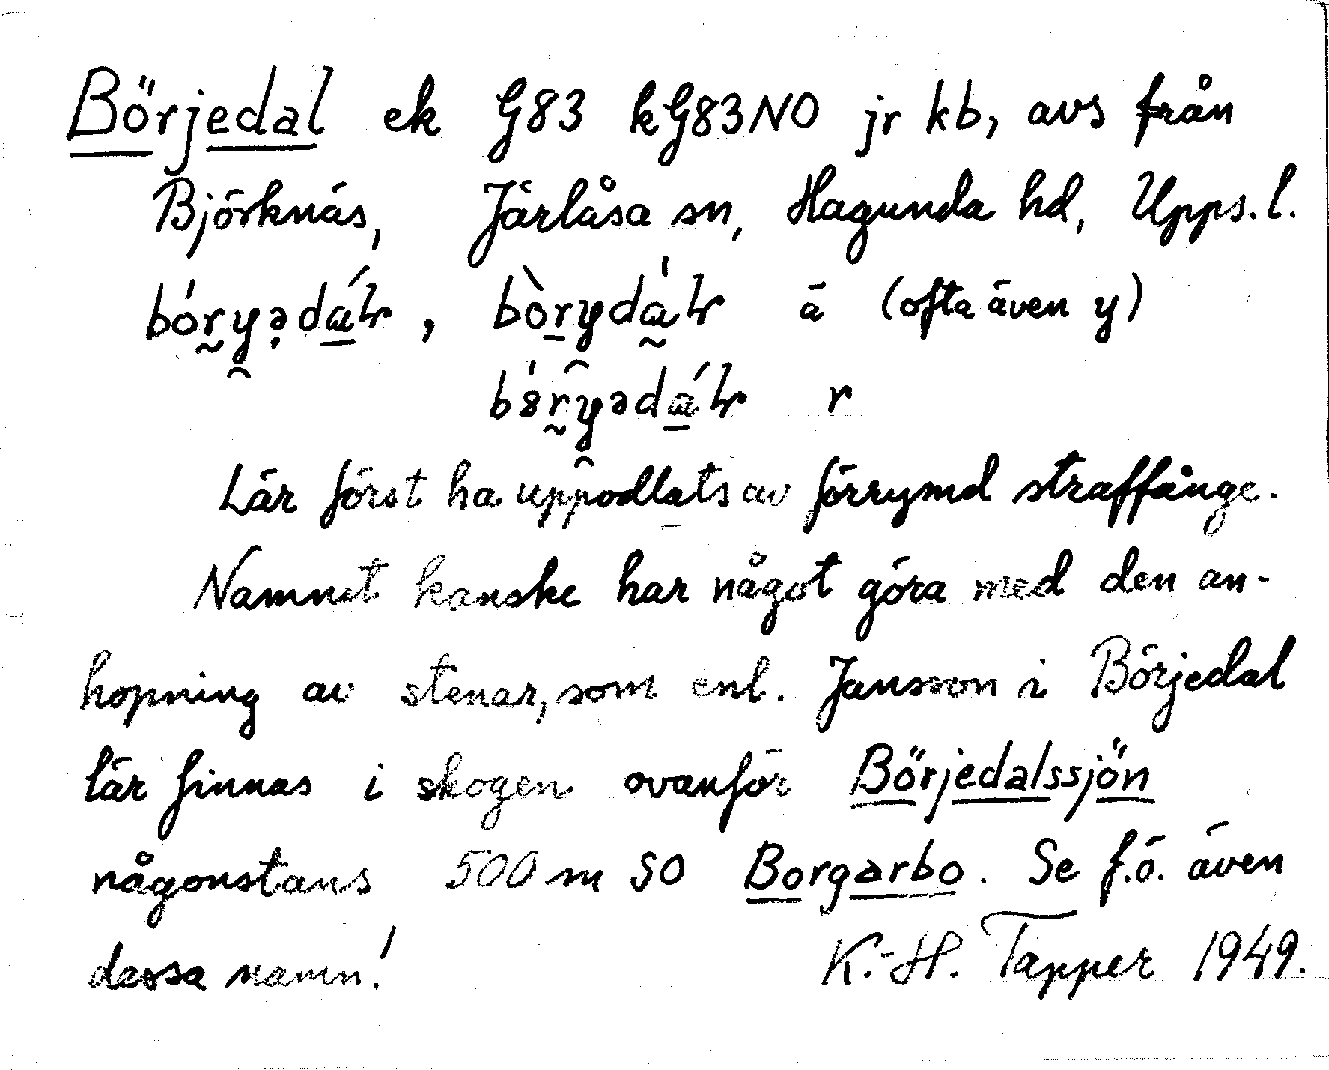 Börjedal ek G83 kG83NO jr kb, avs från
Björknäs, Järlåsa sn, Hagunda hd, Upps.l.
ä (ofta även y)
r
Lär först ha uppodlats av förrymd straffånge.
Namnet kanske har något göra med den an-
hopning av stenar, som enl. Jansson i Börjedal
lär finnas i skogen ovanför Börjedalssjön
någonstans 500 m SO Borgarbo. Se f.ö. även
dessa namn!
K.-H. Tapper 1949.